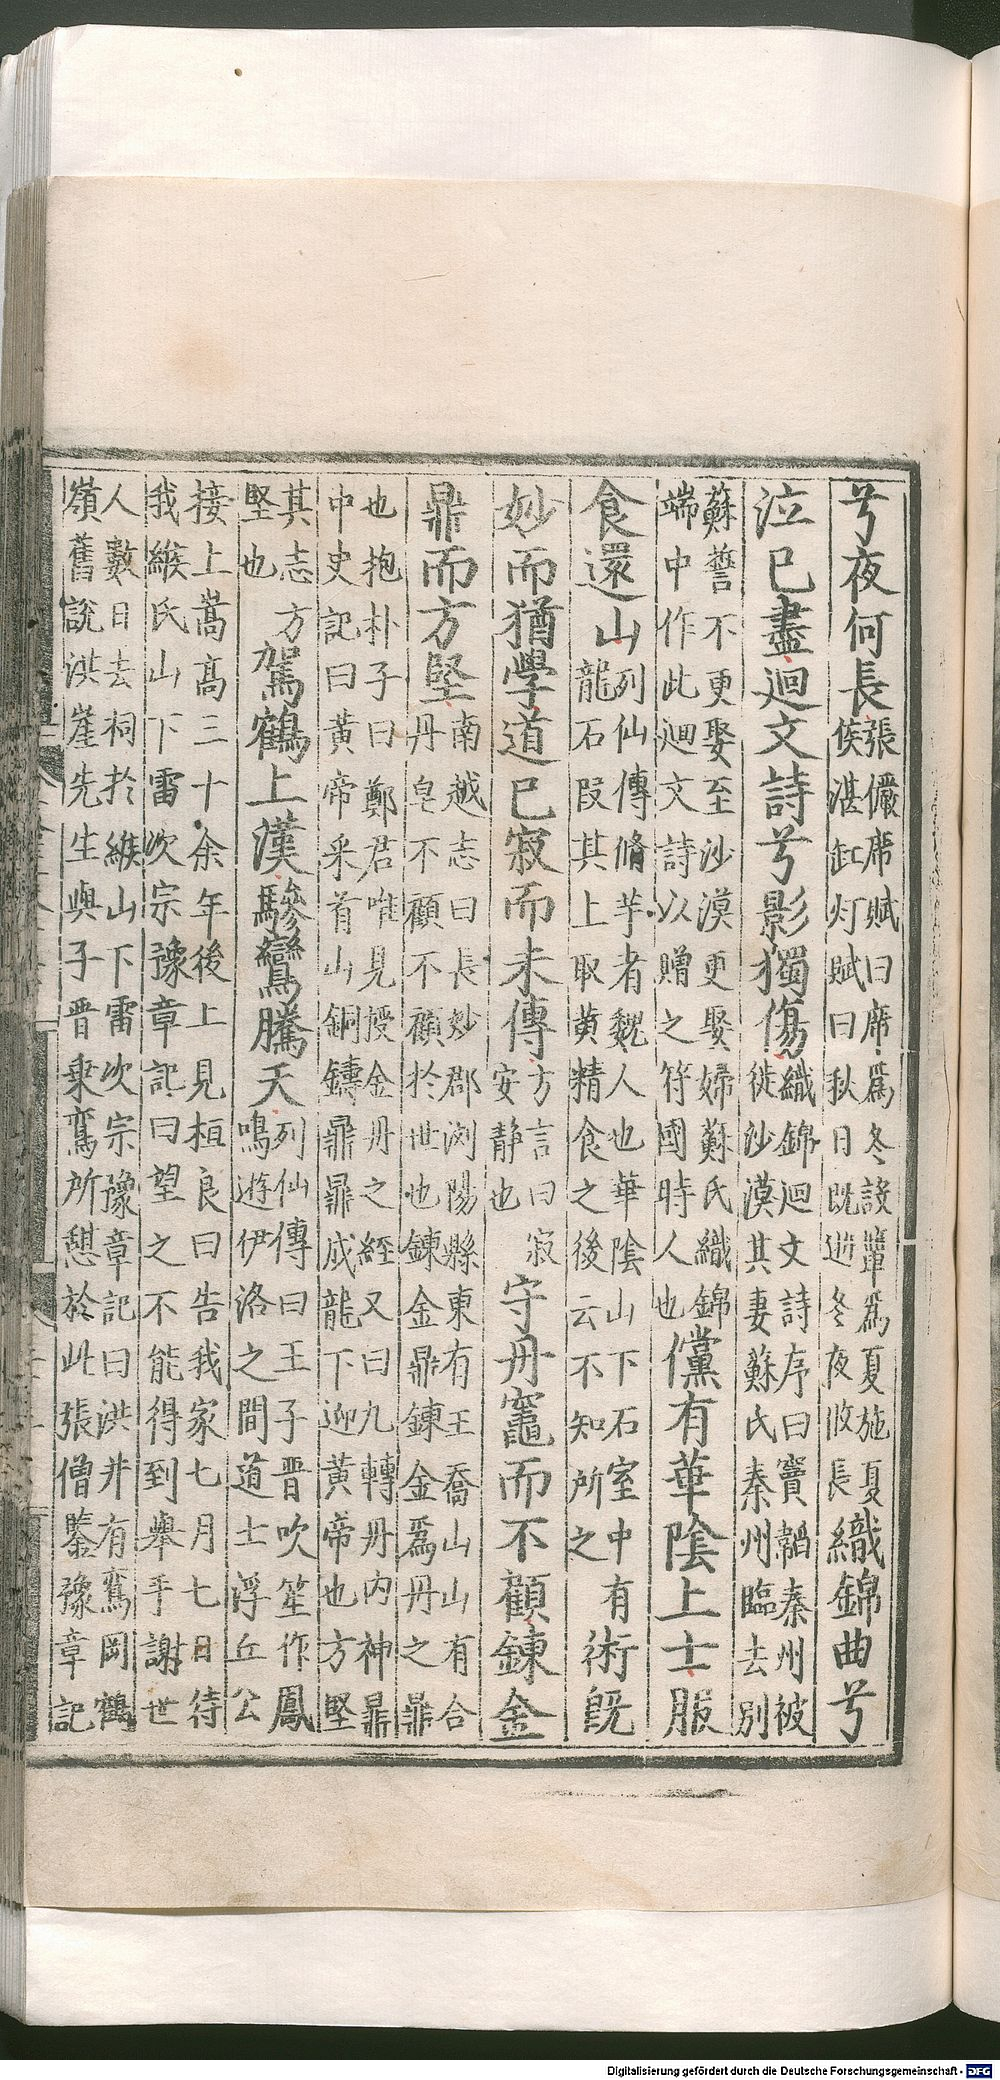 兮夜何長張儼席賦曰席爲冬設簟爲夏施夏侯湛缸灯賦曰秋日既逝冬夜悠長織錦曲兮
泣已盡迴文詩兮影獨傷織錦迴文詩序曰竇韜秦州被徙沙漠其妻蘇氏秦州臨去別
蘇誓不更娶至沙漠更娶婦蘇氏織錦端中作此迴文詩以贈之符國時人也儻有華陰上士服
食還山列仙傳脩芋者魏人也華陰山下石室中有龍石叚其上取黄精食之後云不知所之術既
妙而猶學道已寂而未傳方言曰寂安靜也守丹竈而不顧鍊金
鼎而方堅南越志曰長妙郡浏陽縣東有王喬山山有合丹皂不顧不顧於世也鍊金鼎鍊金爲丹之鼎
也抱朴子曰鄭君唯見授金丹之經又曰九轉丹内神鼎中史記曰黄帝采首山銅鑄鼎鼎成龍下迎黄帝也方堅
其志方堅也駕鶴上漢驂鸞騰天列仙傳曰王子晋吹笙作鳳鳴遊伊洛之間道士浮丘公
接上嵩高三十余年後上見桓良曰告我家七月七日待我緱氏山下雷次宗豫章記曰望之不能得到舉手謝世
人數日去祠於緱山下雷次宗豫章記曰洪井有鸞岡鶴嶺舊説洪崖先生與子晋乘鸞所憩於此張僧鑒豫章記
Digitalisierung gefördert durch die Deutsche Forschungsgemeinschaft - DFG